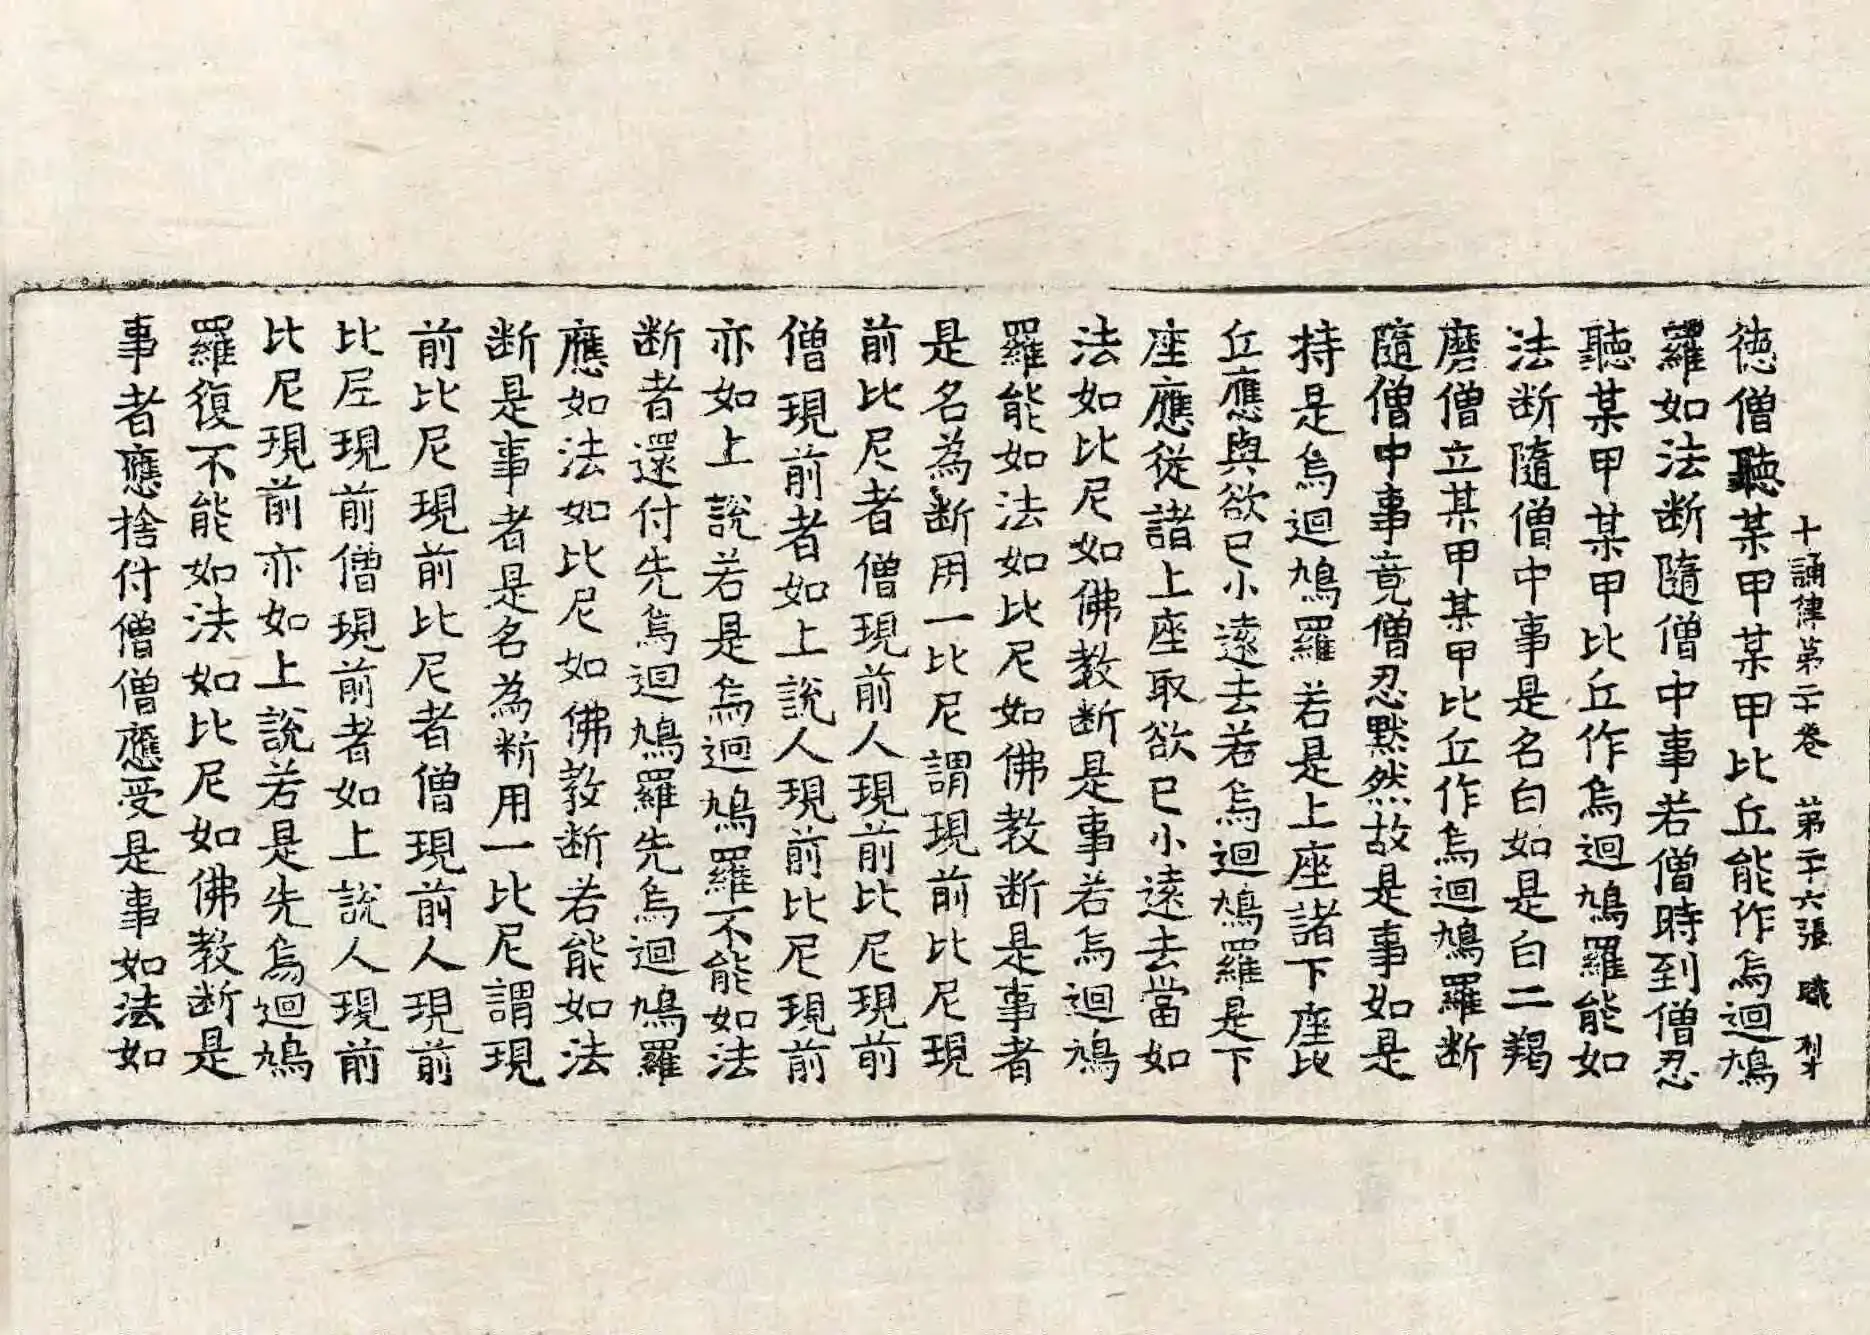 十誦律第二十卷　第二十六張　職
德僧聽某甲某甲比丘能作烏迴鳩
羅如法断隨僧中事若僧時到僧忍
聽某甲某甲比丘作烏迴鳩羅能如
法断隨僧中事是名白如是白二羯
磨僧立某甲某甲比丘作烏迴鳩羅断
隨僧中事竟僧忍默然故是事如是
持是烏迴鳩羅若是上座諸下座比
丘應與欲已小遠去若烏迴鳩羅是下
座應從諸上座取欲已小遠去當如
法如比尼如佛教断是事若烏迴鳩
羅能如法如比尼如佛教断是事者
是名為断用一比尼謂現前比尼現
前比尼者僧現前人現前比尼現前
僧現前者如上說人現前比尼現前
亦如上說若是烏迴鳩羅不能如法
断者還付先烏迴鳩羅先烏迴鳩羅
應如法如比尼如佛教断若能如法
断是事者是名為断用一比尼謂現
前比尼現前比尼者僧現前人現前
比尼現前僧現前者如上說人現前
比尼現前亦如上說若是先烏迴鳩
羅復不能如法如比尼如佛教断是
事者應捨付僧僧應受是事如法如